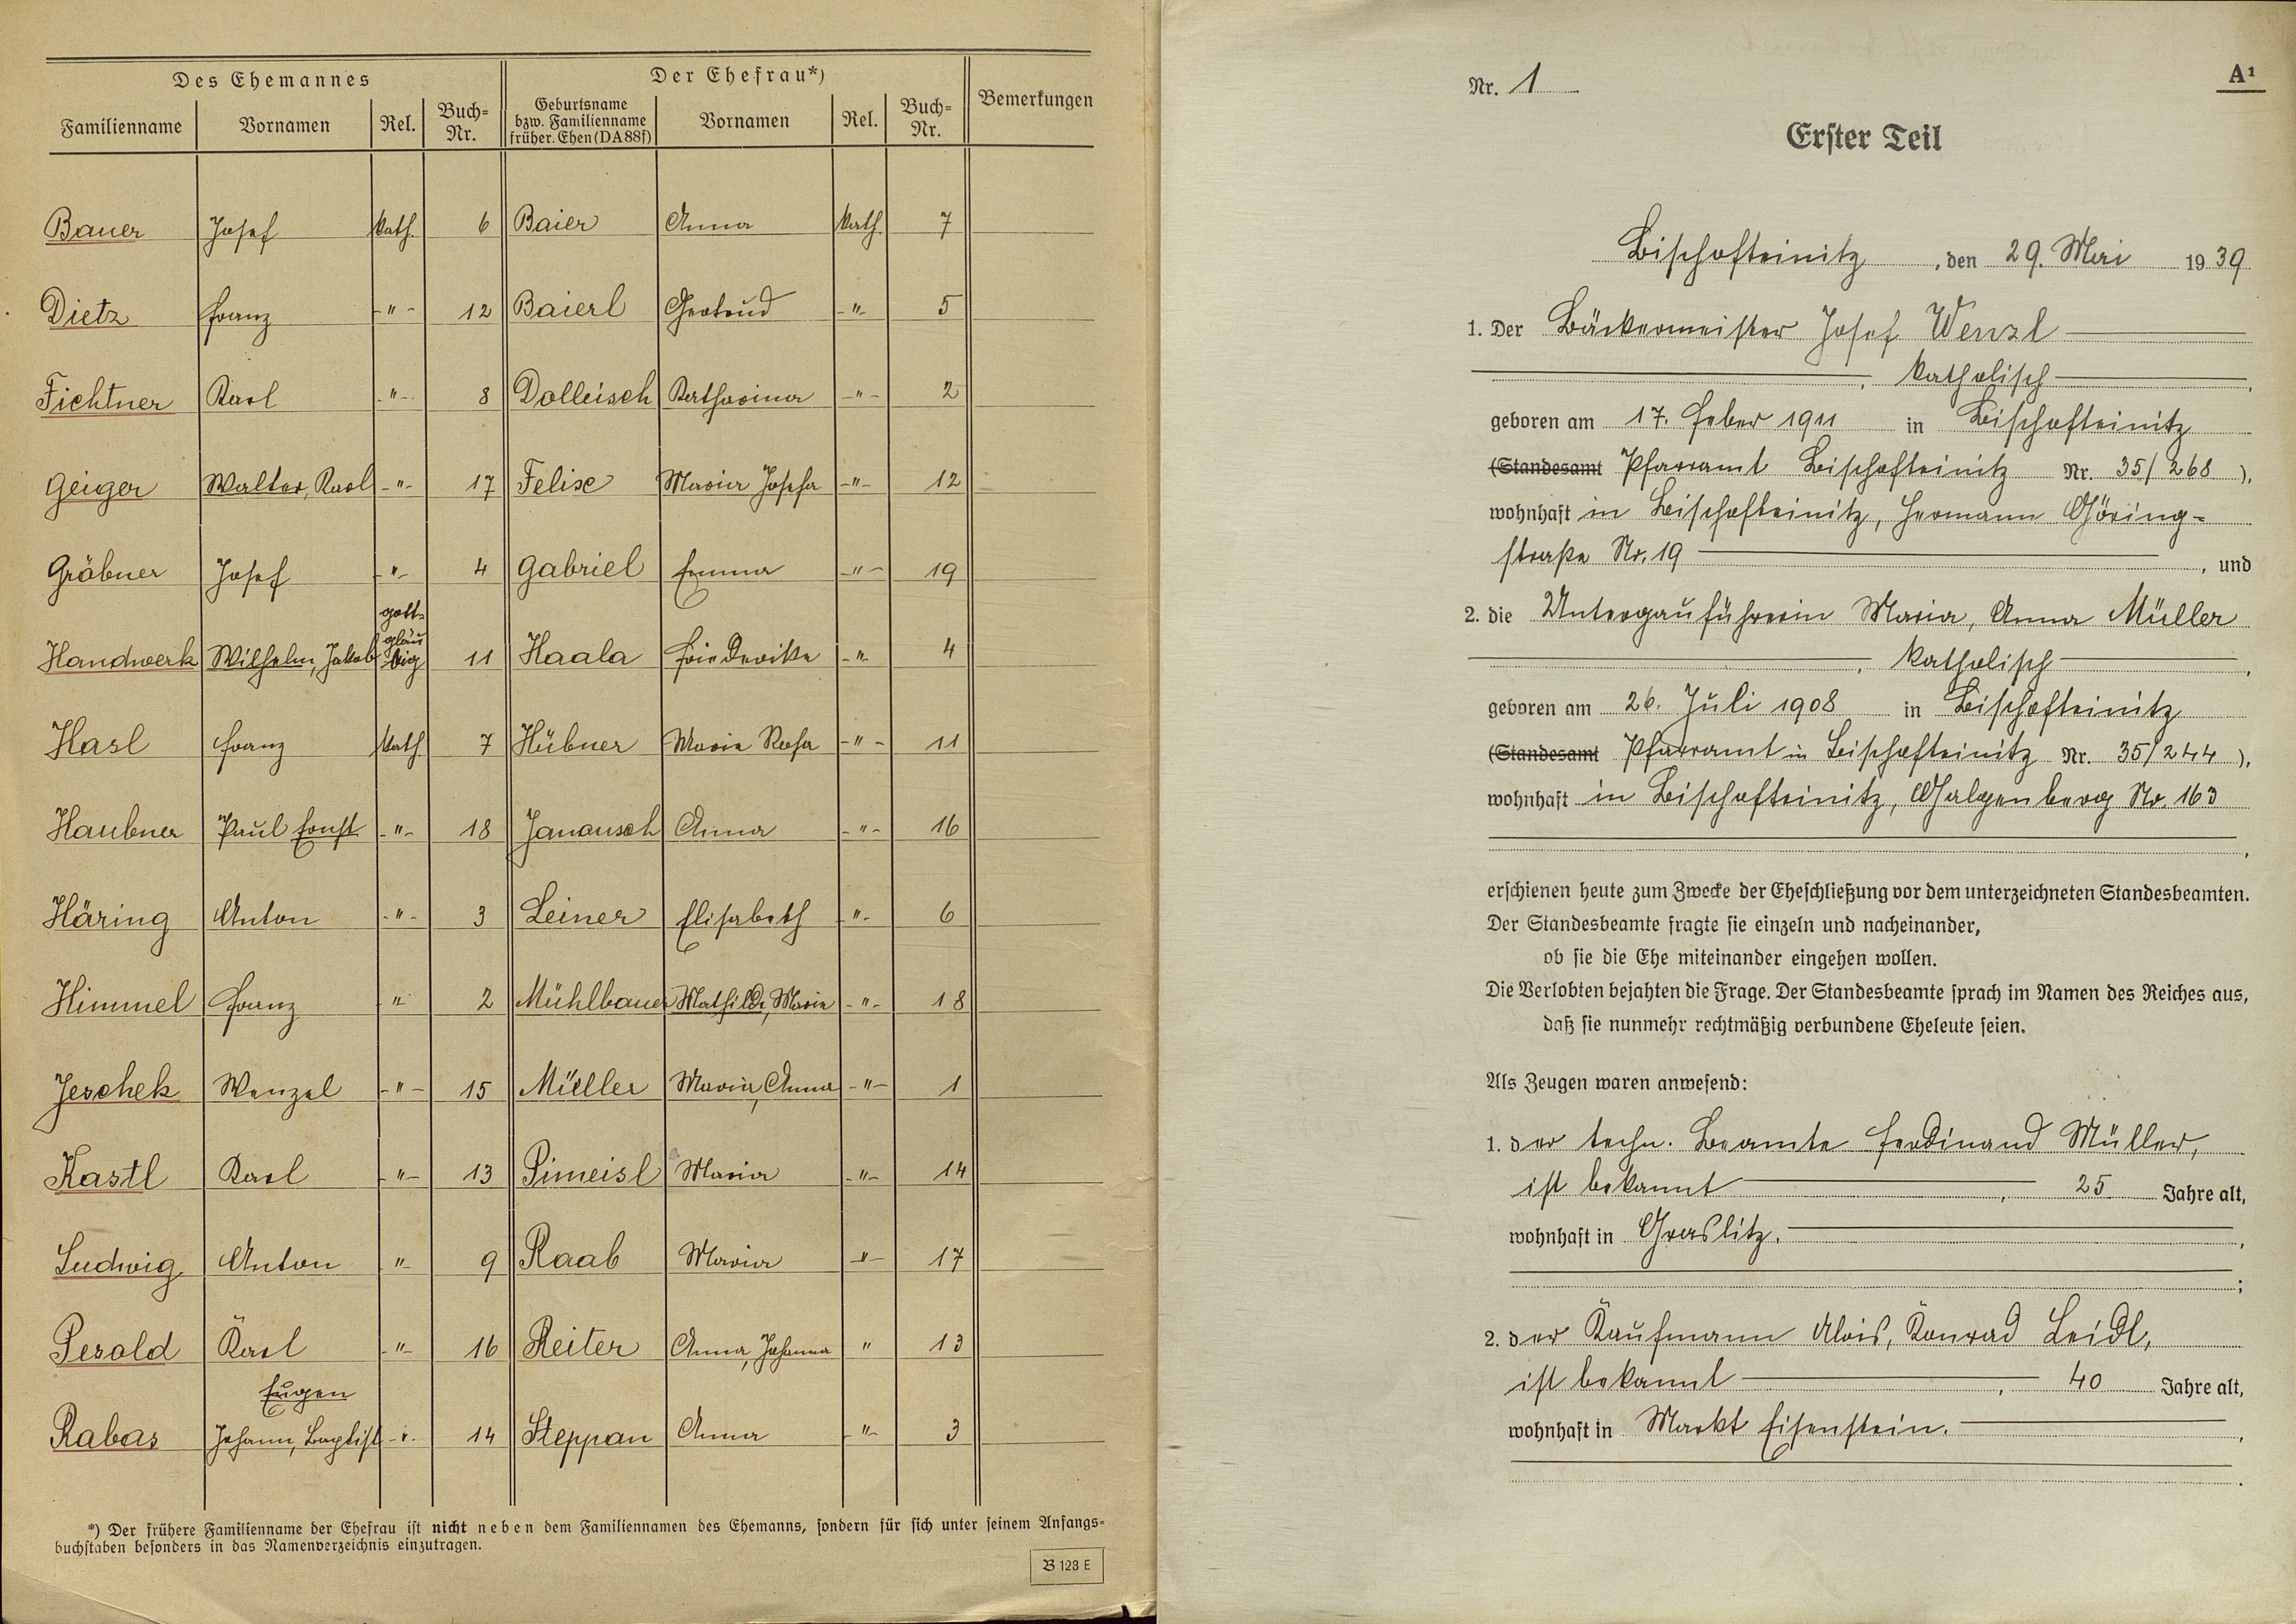 Des Ehemannes Der Ehefrau*) Bemerkungen
Familienname Vornamen Rel. Buch=Nr. Geburtsname bzw. Familienname früher. Ehen (DA 88f) Vornamen Rel. Buch=Nr.
Bauer Josef kath. 6 Baier Anna kath. 7
Dietz Franz -"- 12 Baierl Gertrud -"- 5
Fichtner Karl -"- 8 Dolleisch Katharina -"- 2
Geiger Walter, Karl -"- 17 Felixe Maria Josefa -"- 12
Gröbner Josef -"- 4 Gabriel Emma -"- 19
Handwerk Wilhelm, Jakob gott=gläubig 11 Haala Friederike -"- 4
Hasl Franz kath. 7 Hübner Maria Rosa -"- 11
Haubner Paul Ernst -"- 18 Janausch Anna -"- 16
Häring Anton -"- 3 Leiner Elisabeth -"- 6
Himmel Franz " 2 Mühlbauer Mathilde, Maria -"- 18
Jeschek Wenzel -"- 15 Müller Maria, Anna -"- 1
Kastl Karl -"- 13 Pimeisl Maria -"- 14
Ludwig Anton "- 9 Raab Maria -"- 17
Pesold Karl -"- 16 Reiter Anna, Johanna " 13
Eugen
Rabas Johann, Baptist -"- 14 Steppan Anna -"- 3
*) Der frühere Familienname der Ehefrau ist nicht neben dem Familiennamen des Ehemanns, sondern für sich unter seinem Anfangs=
buchstaben besonders in das Namenverzeichnis einzutragen.
B 123 E
Nr. 1 A¹
Erster Teil
Bischofteinitz, den 29. Mai 1939
1. Der Bäckermeister Josef Wenzl
, katholisch,
geboren am 17. Feber 1911 in Bischofteinitz
(Standesamt Pfarramt Bischofteinitz Nr. 35/268),
wohnhaft in Bischofteinitz, Hermann Göring-
straße Nr. 19, und
2. die Untergauführerin Maria, Anna Müller
, katholisch,
geboren am 26. Juli 1908 in Bischofteinitz
(Standesamt Pfarramt in Bischofteinitz Nr. 35/244),
wohnhaft in Bischofteinitz, Galgenberg Nr. 163
,
erschienen heute zum Zwecke der Eheschließung vor dem unterzeichneten Standesbeamten.
Der Standesbeamte fragte sie einzeln und nacheinander,
ob sie die Ehe miteinander eingehen wollen.
Die Verlobten bejahten die Frage. Der Standesbeamte sprach im Namen des Reiches aus,
daß sie nunmehr rechtmäßig verbundene Eheleute seien.
Als Zeugen waren anwesend:
1. der techn. Beamte Ferdinand Müller,
ist bekannt, 25 Jahre alt,
wohnhaft in Graslitz.,
;
2. der Kaufmann Alois, Konrad Leidl,
ist bekannt, 40 Jahre alt,
wohnhaft in Markt Eisenstein.,
.